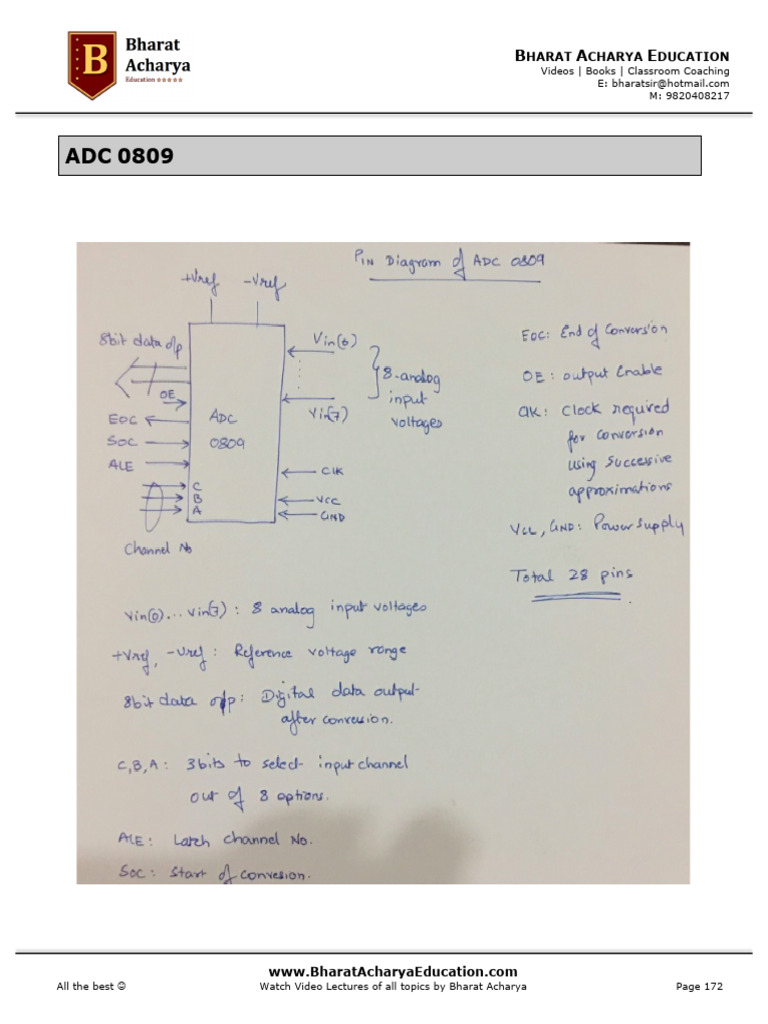 Bharat
Acharya
Education ★★★★★
BHARAT ACHARYA EDUCATION
Videos | Books | Classroom Coaching
E: bharatsir@hotmail.com
M: 9820408217
ADC 0809
PIN Diagram of ADC 0809
+Vref -Vref
8bit data o/p
OE
EOC
SOC
ALE
C
B
A
Channel No
ADC
0809
Vin(0)
Vin(7)
8-analog
input
voltages
CLK
VCC
GND
EOC: End of Conversion
OE: output Enable
CLK: Clock required
for conversion
using successive
approximations
VCC, GND: Power supply
Total 28 pins
Vin(0)... Vin(7): 8 analog input voltages
+Vref, -Vref: Reference voltage range
8bit data o/p: Digital data output
after conversion.
C,B,A: 3bits to select input channel
out of 8 options.
ALE: Latch channel No.
SOC: Start of convesion.
www.BharatAcharyaEducation.com
All the best ☺ Watch Video Lectures of all topics by Bharat Acharya Page 172